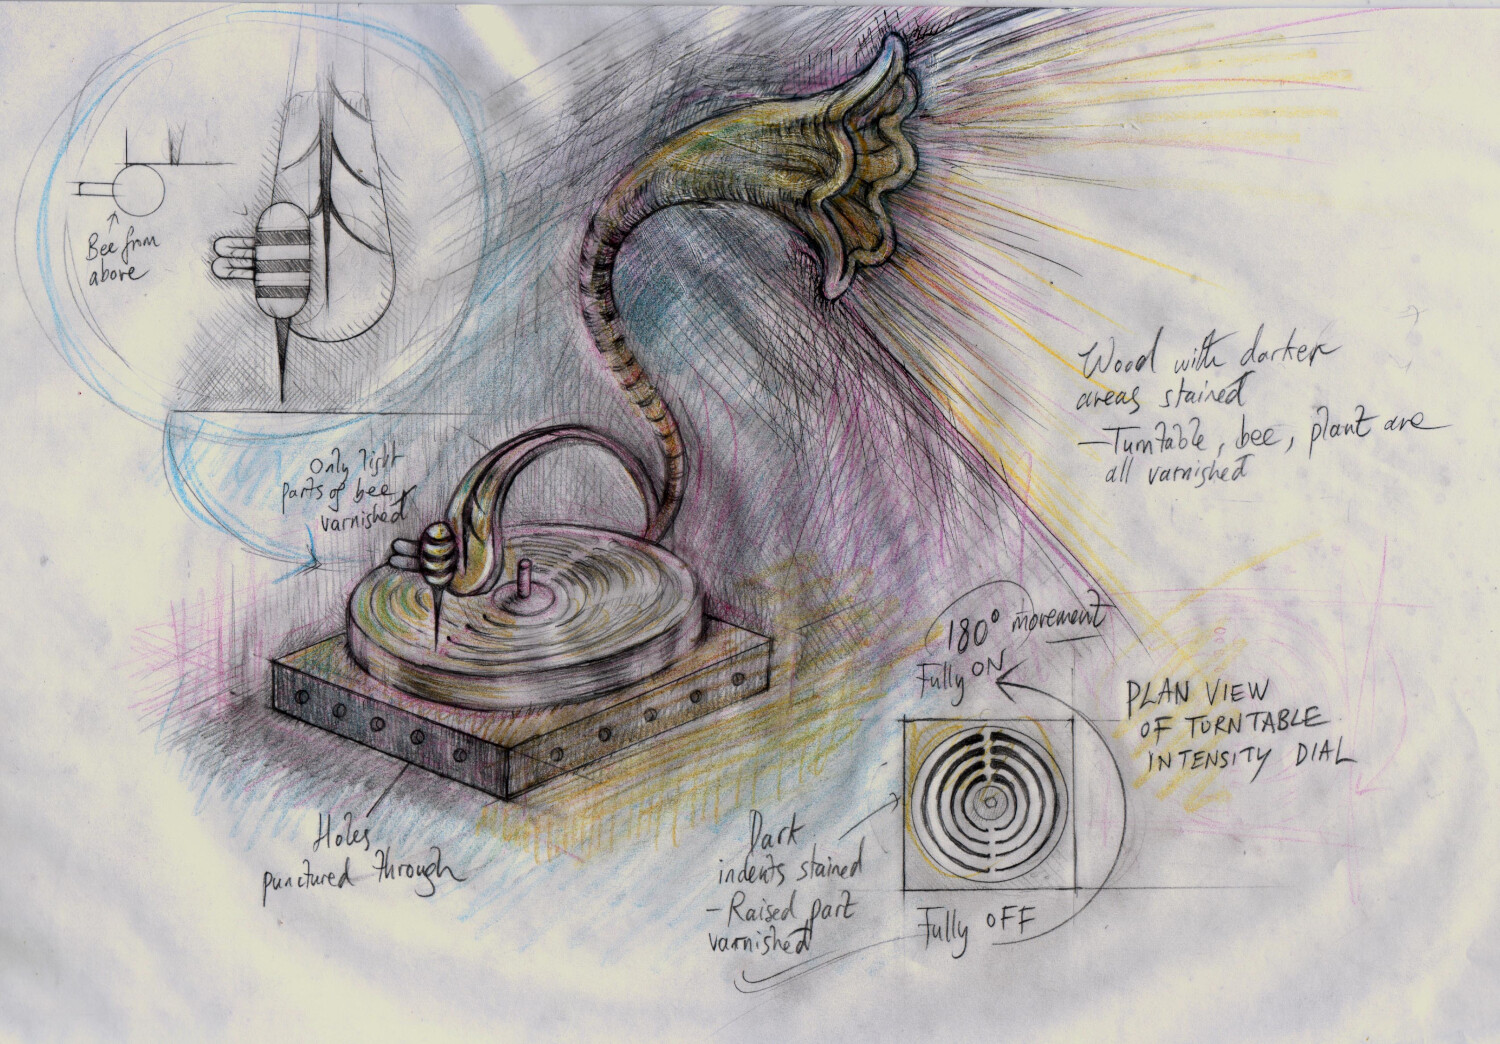 Bee from
above
Only light
parts of bee
varnished
Wood with darker
areas stained
-Turntable, bee, plant are
all varnished
180° movement
Fully ON
PLAN VIEW
OF TURNTABLE
INTENSITY DIAL
Holes
punctured through
Dark
indents stained
- Raised part
varnished
Fully OFF